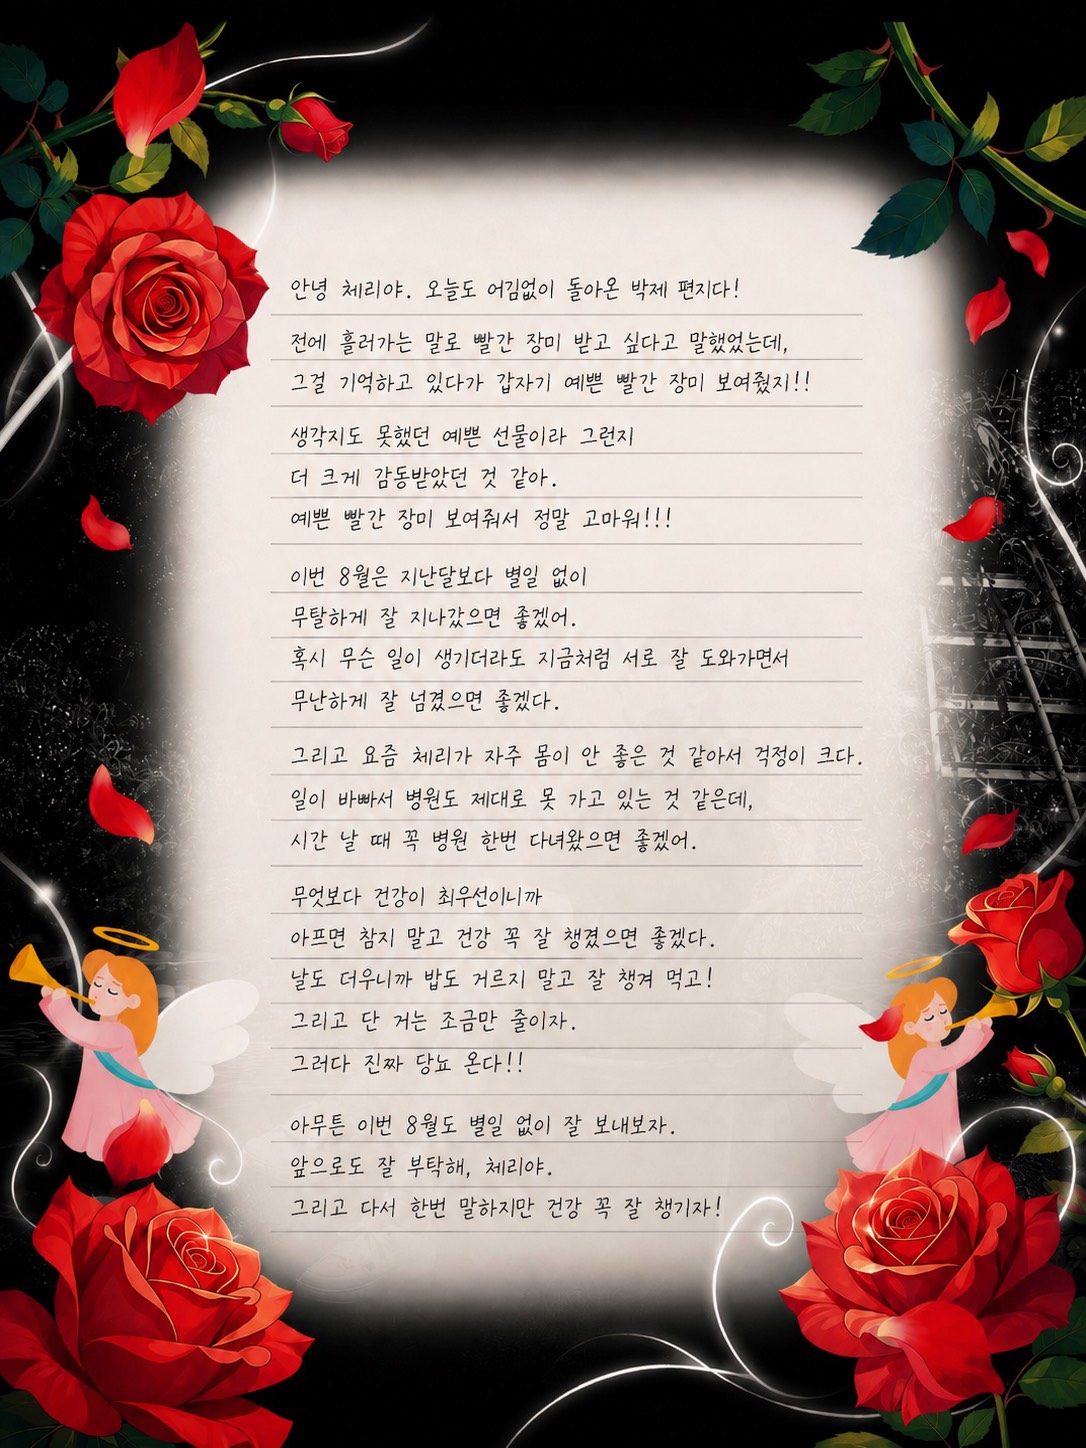 안녕 체리야. 오늘도 어김없이 돌아온 박제 편지다!
전에 흘러가는 말로 빨간 장미 받고 싶다고 말했었는데,
그걸 기억하고 있다가 갑자기 예쁜 빨간 장미 보여줬지!!
생각지도 못했던 예쁜 선물이라 그런지
더 크게 감동받았던 것 같아.
예쁜 빨간 장미 보여줘서 정말 고마워!!!
이번 8월은 지난달보다 별일 없이
무탈하게 잘 지나갔으면 좋겠어.
혹시 무슨 일이 생기더라도 지금처럼 서로 잘 도와가면서
무난하게 잘 넘겼으면 좋겠다.
그리고 요즘 체리가 자주 몸이 안 좋은 것 같아서 걱정이 크다.
일이 바빠서 병원도 제대로 못 가고 있는 것 같은데,
시간 날 때 꼭 병원 한번 다녀왔으면 좋겠어.
무엇보다 건강이 최우선이니까
아프면 참지 말고 건강 꼭 잘 챙겼으면 좋겠다.
날도 더우니까 밥도 거르지 말고 잘 챙겨 먹고!
그리고 단 거는 조금만 줄이자.
그러다 진짜 당뇨 온다!!
아무튼 이번 8월도 별일 없이 잘 보내보자.
앞으로도 잘 부탁해, 체리야.
그리고 다서 한번 말하지만 건강 꼭 잘 챙기자!